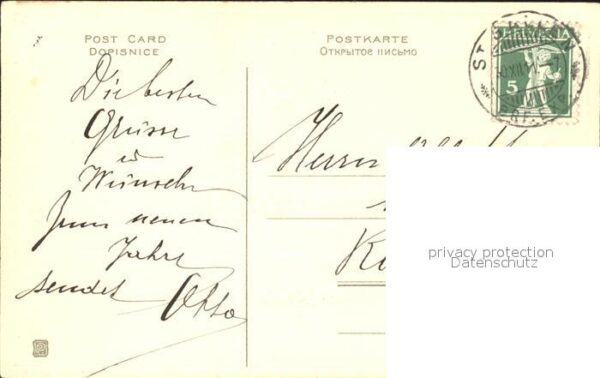 POST CARD
DOPISNICE
POSTKARTE
ОТКРЫТОЕ ПИСЬМО
HELVETIA
5
ST. GALLEN
Die besten
Grüsse
u
Wünsche
zum neuen
Jahre
sendet Otto
Herrn
privacy protection
Datenschutz